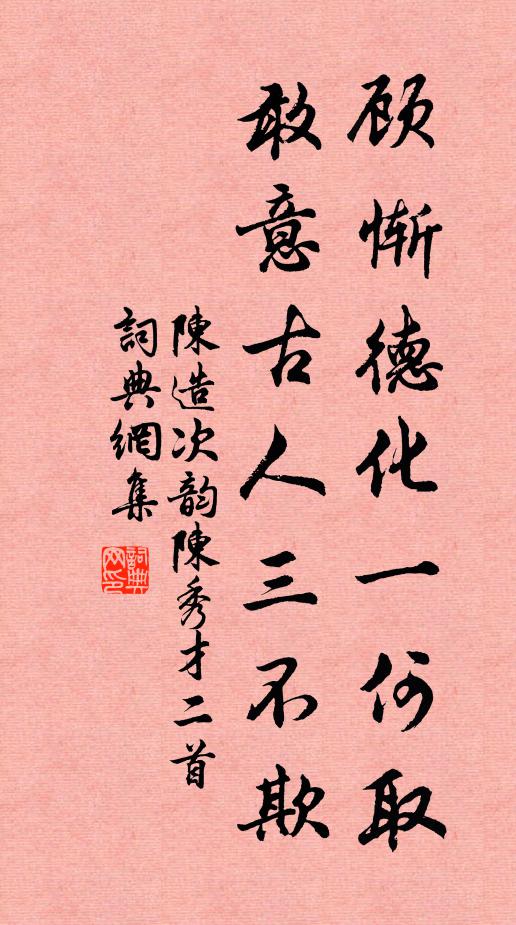 顾惭德化一何取
敢意古人三不欺
陳造次韵陳秀才二首
詞典網集
詞典网印